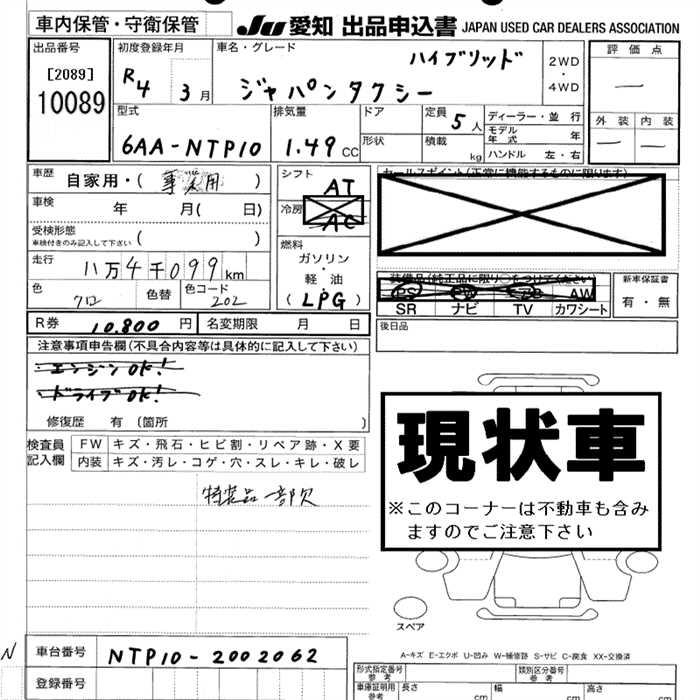 車内保管・守衛保管
JU 愛知 出品申込書 JAPAN USED CAR DEALERS ASSOCIATION
出品番号
[2089]
10089
初度登録年月
R4 3月
車名・グレード
ハイブリッド
ジャパンタクシー
2WD
・
4WD
評価点
—
外装 内装
— —
型式
6AA-NTP10
排気量
1.49 CC
ドア
形状
定員 5人
積載 kg
ディーラー・並行
モデル年式 年
ハンドル 左・右
車歴
自家用・( 事業用 )
車検 年 月( 日)
受検形態
車検付きのみ記入して下さい ( )
走行 八万4千099km
色 クロ
色替
色コード 202
シフト AT
冷房 AC
燃料
ガソリン
・
軽油
(LPG)
セールスポイント(正常に機能するものに限ります)
装備品(純正品に限り○をつけてください)
PS PW AW
SR ナビ TV カワシート
新車保証書
有・無
R券 10.800 円 名変期限 月 日
後日品
注意事項申告欄(不具合内容等は具体的に記入して下さい)
エンジンOK!
ドライブOK!
修復歴 有 (箇所 )
検査員記入欄
FW キズ・飛石・ヒビ割・リペア跡・X要
内装 キズ・汚レ・コゲ・穴・スレ・キレ・破レ
特装品一部欠
現状車
※このコーナーは不動車も含みますのでご注意下さい
スペア
A-キズ E-エクボ U-凹み W-補修跡 S-サビ C-腐食 XX-交換済
N
車台番号 NTP10-2002062
登録番号
形式指定番号 参考
類別区分番号 参考
車庫証明用 参考 長さ cm 幅 cm 高さ cm